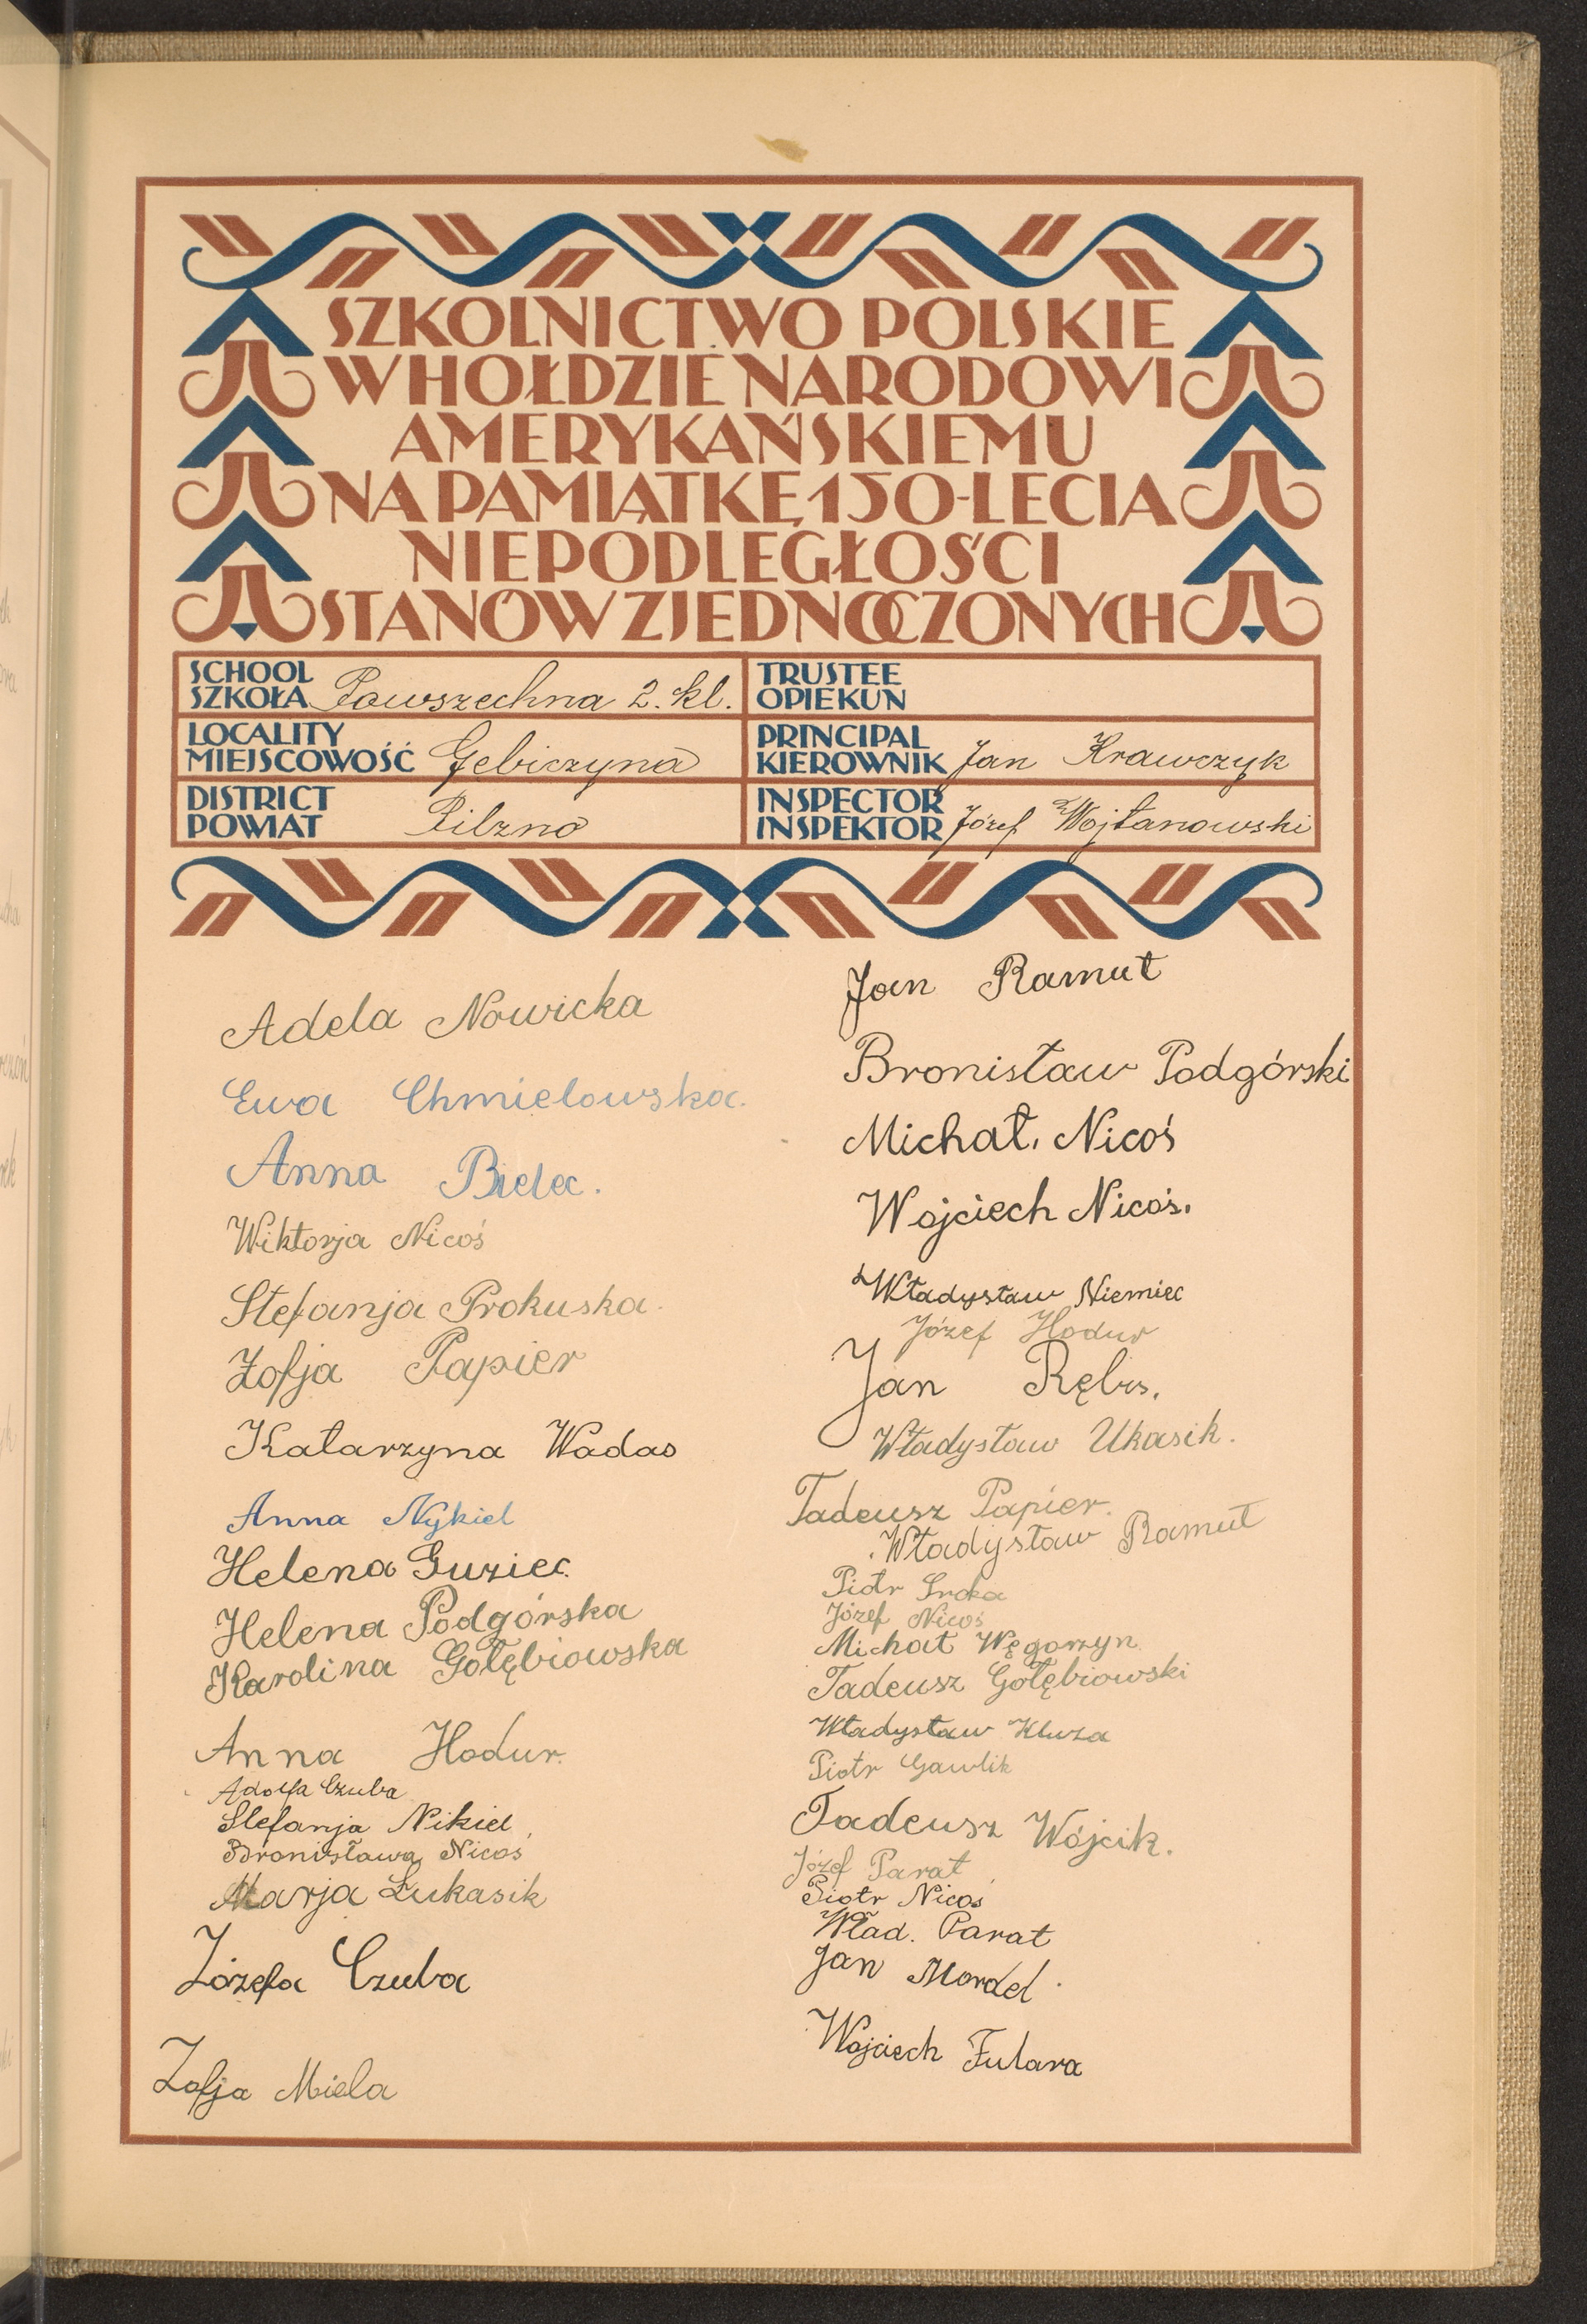 SZKOLNICTWO POLSKIE
W HOŁDZIE NARODOWI
AMERYKAŃSKIEMU
NA PAMIĄTKĘ 150-LECIA
NIEPODLEGŁOŚCI
STANÓW ZJEDNOCZONYCH
SCHOOL
SZKOŁA Powszechna 2. kl.
TRUSTEE
OPIEKUN
LOCALITY
MIEJSCOWOŚĆ Gębiczyna
PRINCIPAL
KIEROWNIK Jan Krawczyk
DISTRICT
POWIAT Pilzno
INSPECTOR
INSPEKTOR Józef Wojtanowski
Adela Nowicka
Ewa Chmielowska.
Anna Bielec.
Wiktorja Nicoś
Stefanja Prokuska.
Zofja Papier
Katarzyna Wadas
Anna Nykiel
Helena Guziec.
Helena Podgórska
Karolina Gołębiowska
Anna Hodur.
Adolfa Czuba
Stefanja Nikiel
Bronisława Nicoś
Marja Łukasik
Józefa Czuba
Zofja Miela
Jan Ramut
Bronisław Podgórski
Michał. Nicoś
Wojciech Nicoś.
Władysław Niemiec
Józef Hodur
Jan Rębiś.
Władysław Ukasik.
Tadeusz Papier.
Władysław Ramut
Piotr Sroka
Józef Nicoś
Michał Węgorzyn
Tadeusz Gołębiowski
Władysław Kluza
Piotr Gawlik
Tadeusz Wójcik.
Józef Parat
Piotr Nicoś
Wład. Parat
Jan Mordel.
Wojciech Fulara